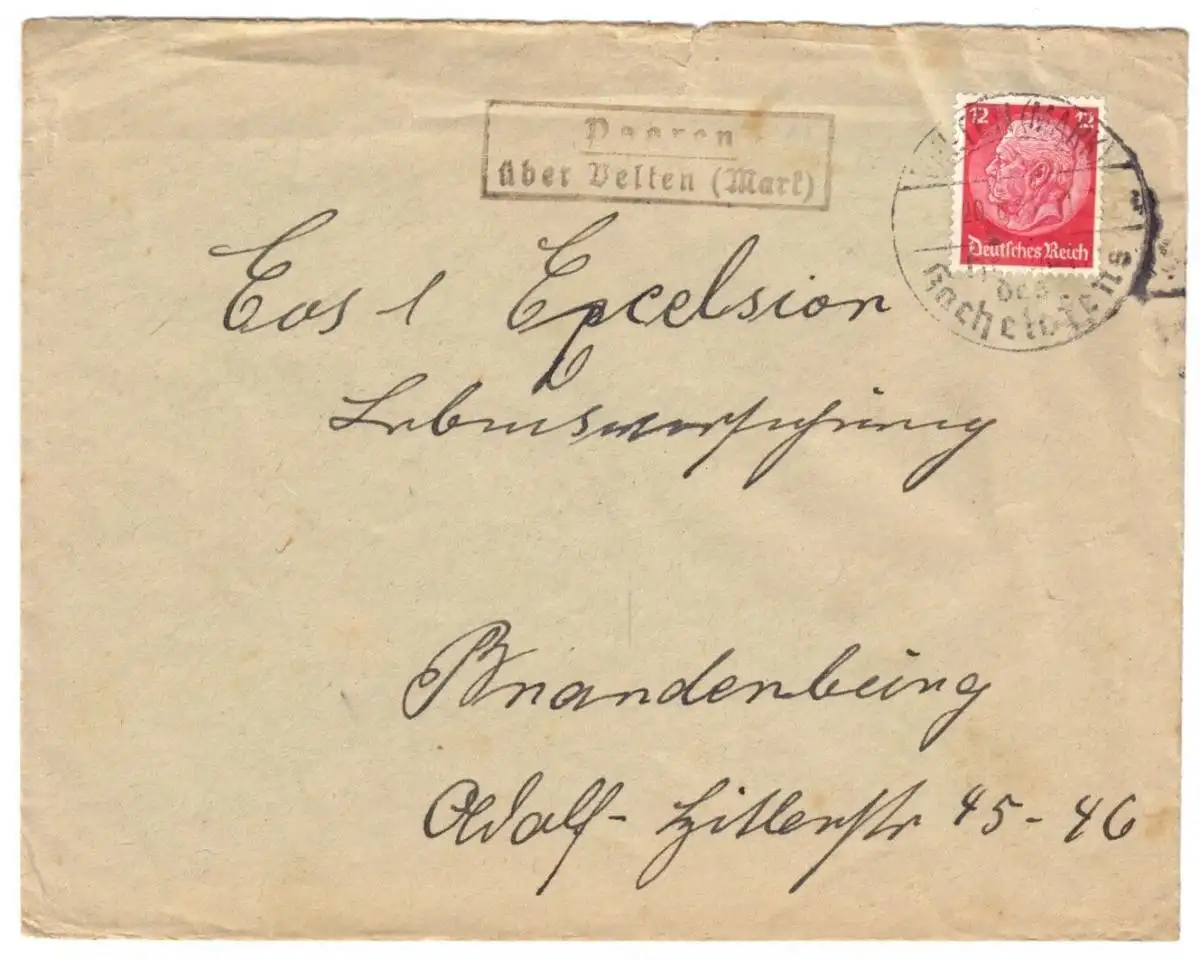 Paaren
über Velten (Mark)
12 12
Deutsches Reich
VELTEN (MARK)
des
Kachelofens
Eos Excelsior
Lebensversichrung
Brandenburg
Adolf-Hitlerstr 45-46